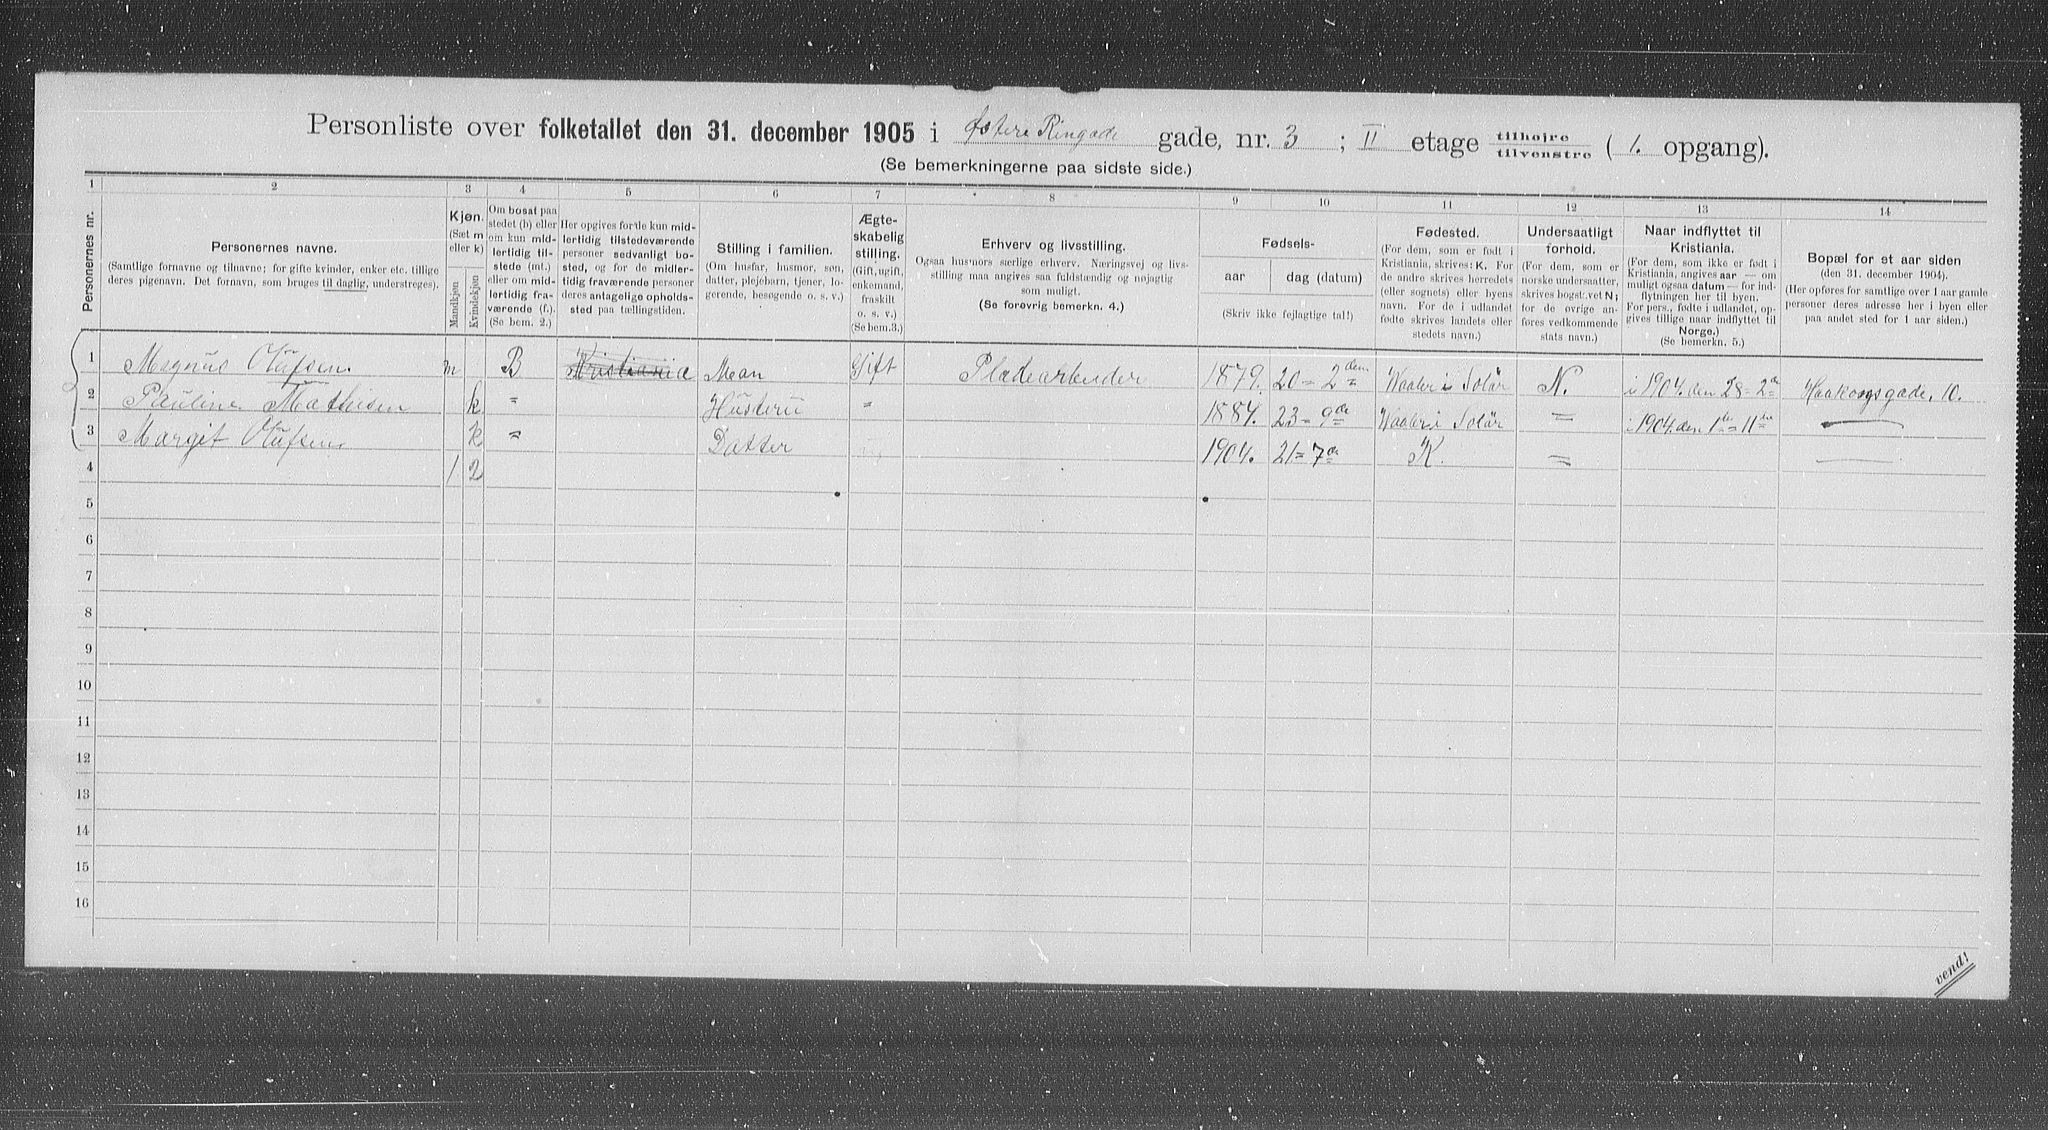 Personliste over folketallet den 31. december 1905 i Østere Ringade gade, nr. 3 ; II etage tilhøjre / tilvenstre ( 1. opgang).
(Se bemerkningerne paa sidste side.)
1 2 3 4 5 6 7 8 9 10 11 12 13 14
Personernes nr.
Personernes navne.
(Samtlige fornavne og tilnavne; for gifte kvinder, enker etc. tillige
deres pigenavn. Det fornavn, som bruges til daglig, understreges).
Kjøn.
(Sæt m
eller k)
Mandkjøn
Kvindekjøn
Om bosat paa
stedet (b) eller
om kun mid-
lertidig til-
stede (mt.)
eller om mid-
lertidig fra-
værende (f.).
(Se bem. 2.)
Her opgives fortle kun mid-
lertidig tilstedeværende
personer sedvanligt bo-
sted, og for de midler-
tidig fraværende personer
deres antagelige opholds-
sted paa tællingstiden.
Stilling i familien.
(Om husfar, husmor, søn,
datter, plejebarn, tjener, lo-
gerende, besøgende o. s. v.)
Ægte-
skabelig
stilling.
(Gift, ugift,
enkemand,
fraskilt
o. s. v.)
(Se bem.3.)
Erhverv og livsstilling.
Ogsaa husmors særlige erhverv. Næringsvej og livs-
stilling maa angives saa fuldstændig og nøjagtig
som muligt.
(Se forøvrig bemerkn. 4.)
Fødsels-
aar dag (datum)
(Skriv ikke fejlagtige tal!)
Fødested.
(For dem, som er født i
Kristiania, skrives: K. For
de andre skrives herredets
(eller sognets) eller byens
navn. For de i udlandet
fødte skrives landets eller
stedets navn.)
Undersaatligt
forhold.
(For dem, som er
norske undersaatter,
skrives bogst.vet N;
for de øvrige an-
føres vedkommende
stats navn.)
Naar indflyttet til
Kristiania.
(For dem, som ikke er født i
Kristiania, angives aar — om
muligt ogsaa datum — for ind-
flytningen her til byen.
For pers., fødte i udlandet, op-
gives tillige naar indflyttet til
Norge.)
(Se bemerkn. 5.)
Bopæl for et aar siden
(den 31. december 1904).
(Her opføres for samtlige over 1 aar gamle
personer deres adresse her i byen eller
paa andet sted for 1 aar siden.)
1 Magnus Olufsen. m B Kristiania Man Gift Pladearbeider 1879. 20 = 2den Waaler i Solør N. i 1904. den 28 - 2de Haakongsgade, 10.
2 Pauline Mathisen k " Hustru " 1884. 23 - 9de Waaler i Solør = i 1904. den 1te = 11te —
3 Margit Olufsen. k " Datter 1904. 21 = 7de K. = —
4 1 2
5
6
7
8
9
10
11
12
13
14
15
16
vend!